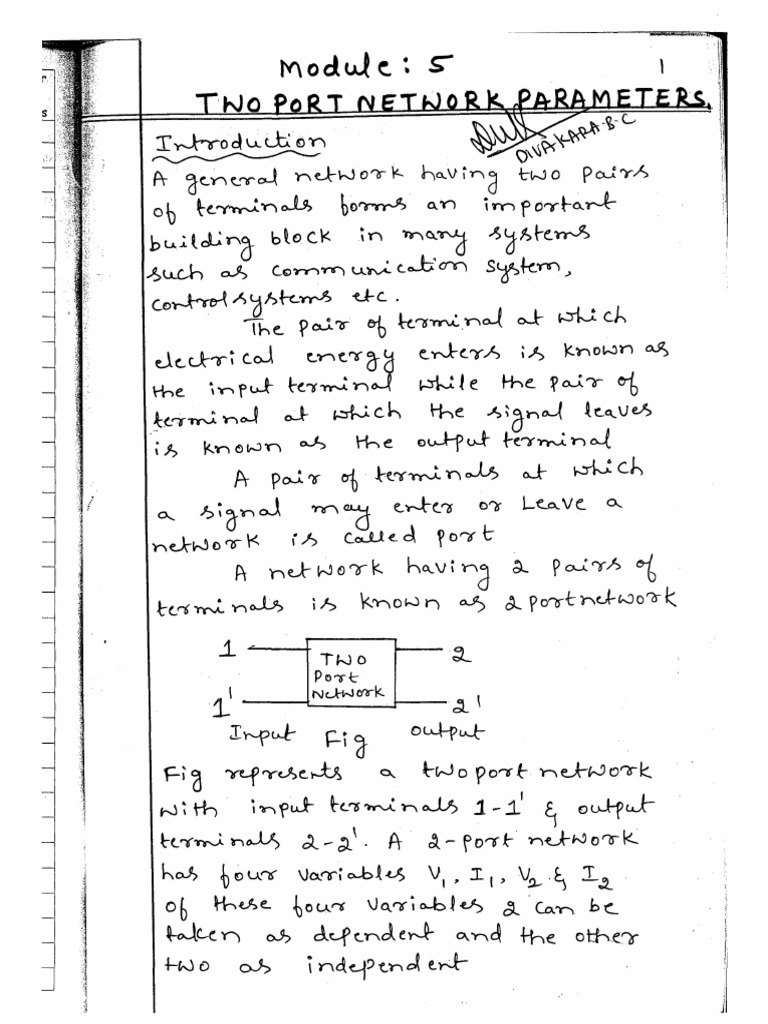 Module: 5
1
TWO PORT NETWORK PARAMETERS.
Introduction
DIVAKARA.B.C
A general network having two pairs
of terminals forms an important
building block in many systems
such as communication system,
control systems etc.
The pair of terminal at which
electrical energy enters is known as
the input terminal while the pair of
terminal at which the signal leaves
is known as the output terminal
A pair of terminals at which
a signal may enter or Leave a
network is called port
A network having 2 pairs of
terminals is known as 2 port network
1 TWO 2
Port
Network
1' 2'
Input Fig output
Fig represents a two port network
with input terminals 1-1' & output
terminals 2-2'. A 2-port network
has four variables V1, I1, V2 & I2
of these four variables 2 can be
taken as dependent and the other
two as independent